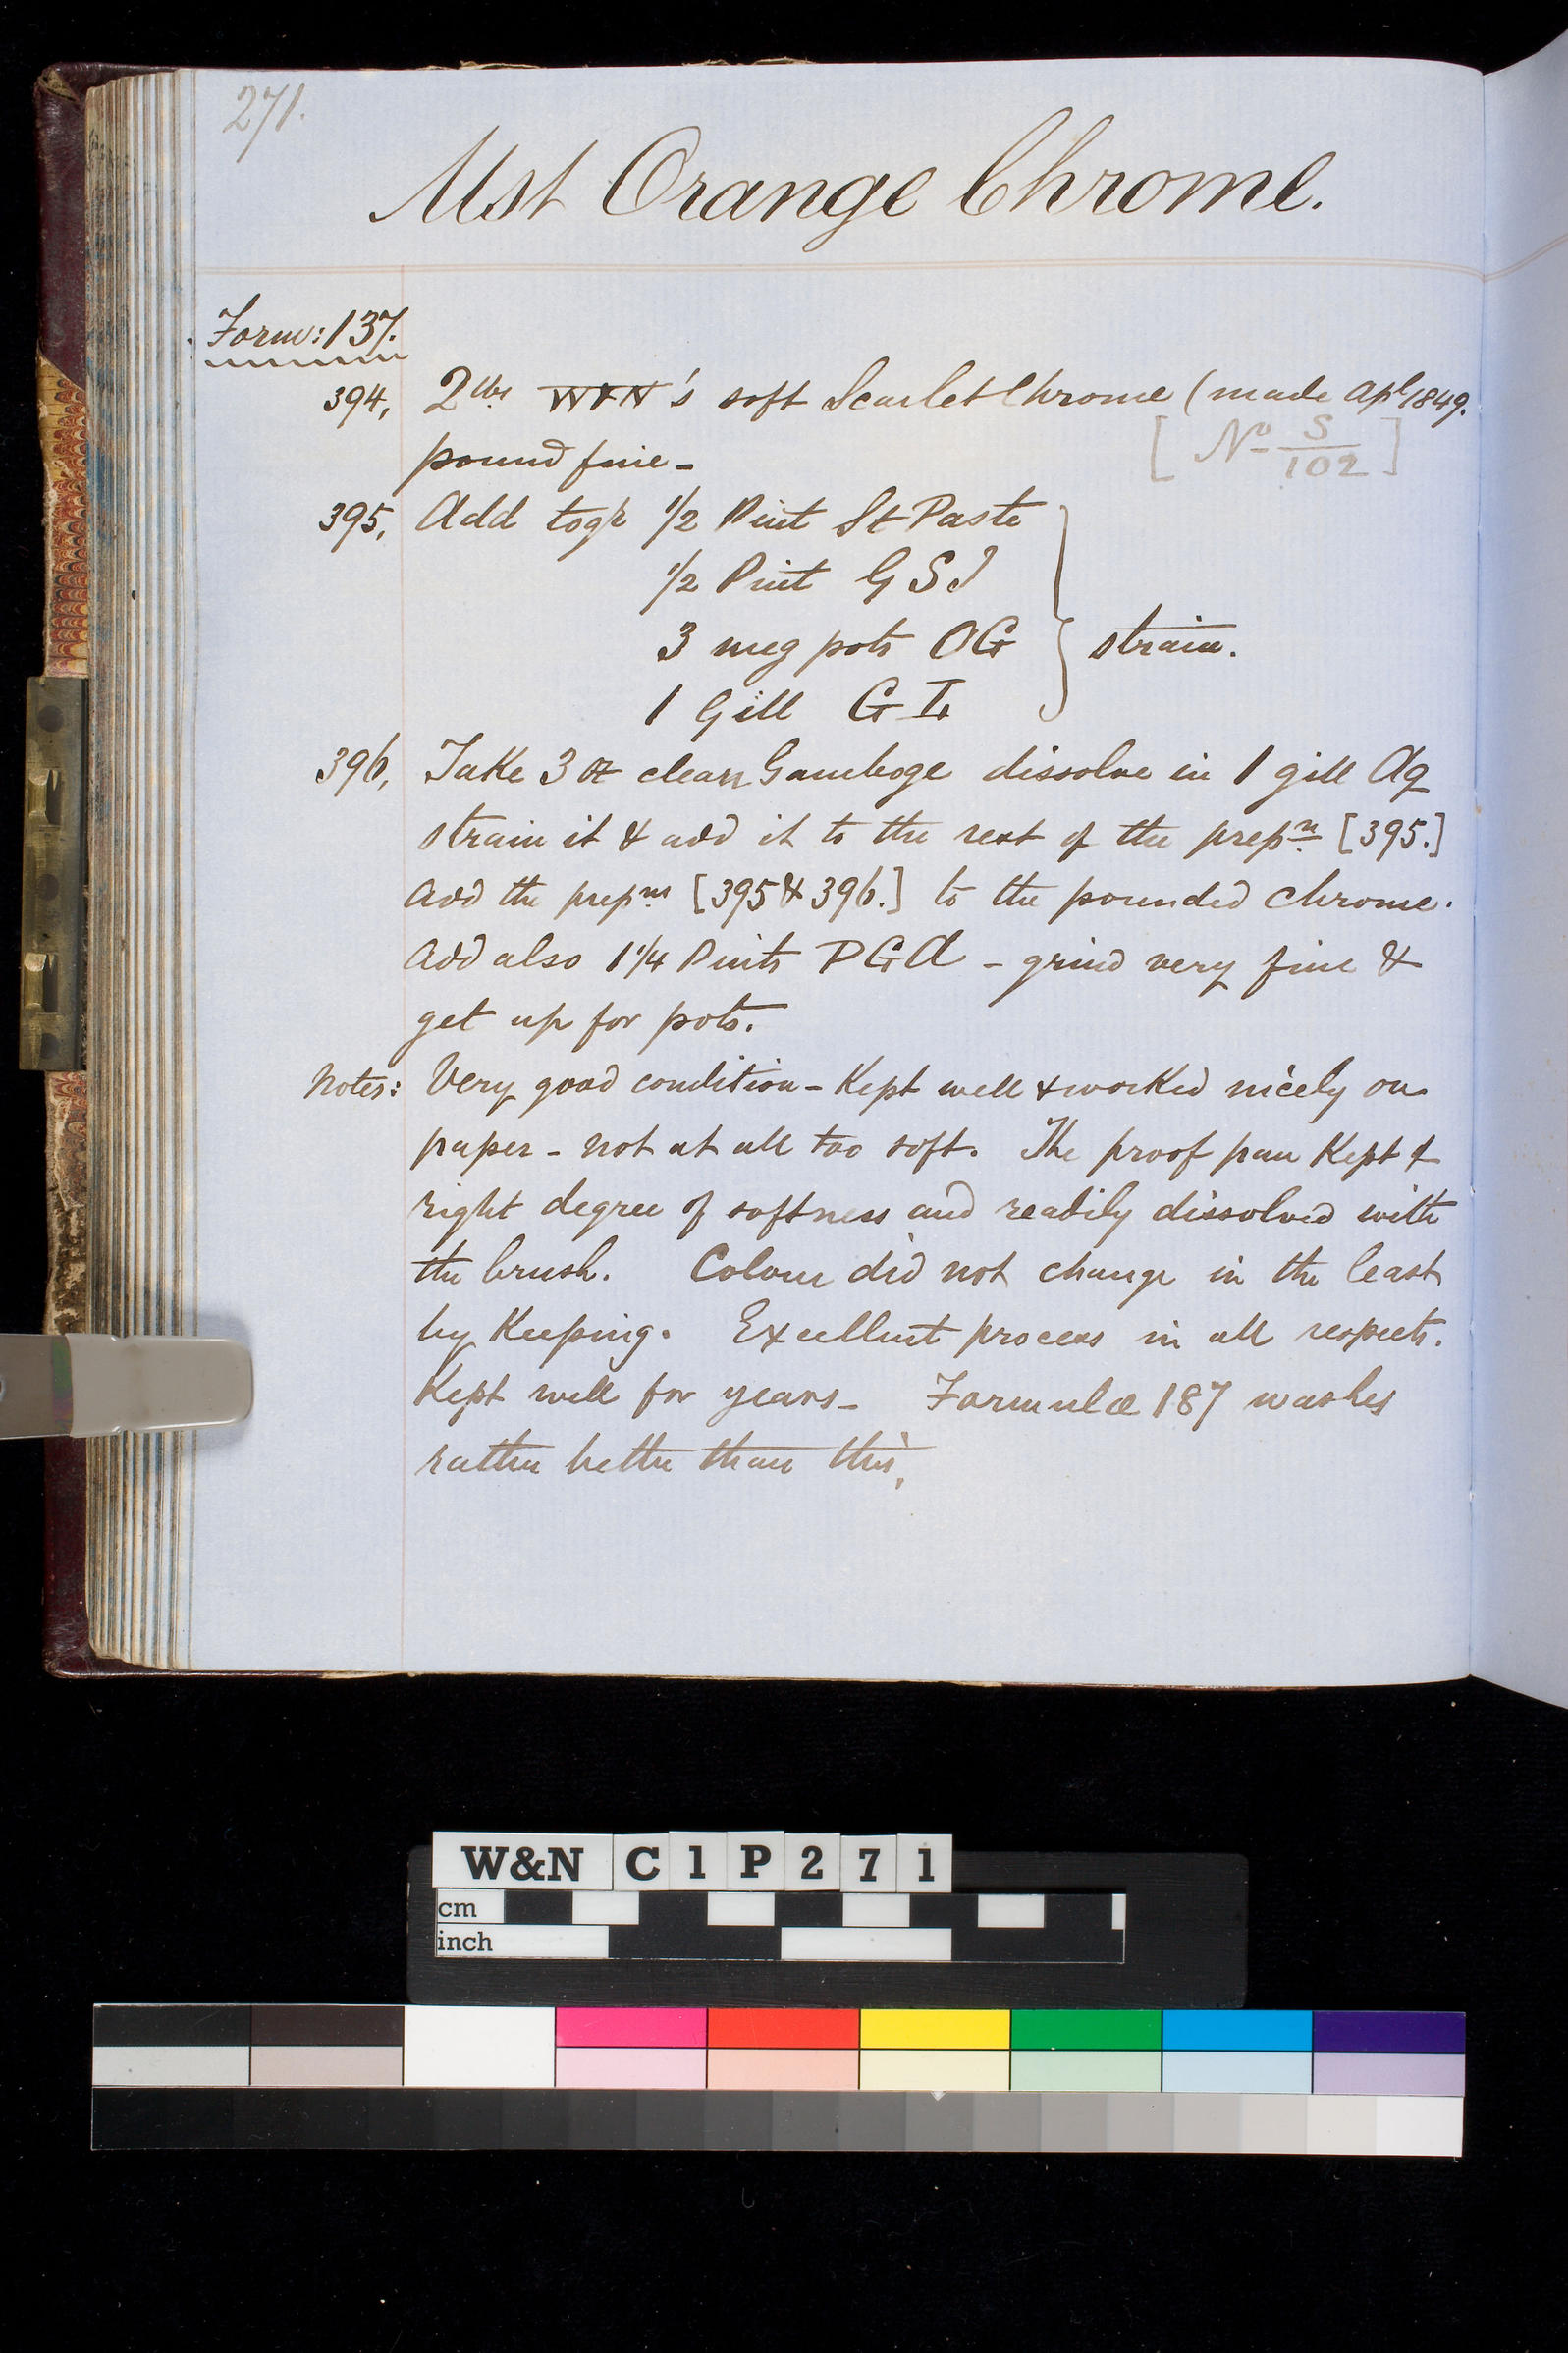 271.
Mst Orange Chrome.
Form: 137.
394, 2 lbs W&N's soft Scarlet Chrome (made Apl 1849.
[No S/102]
pound fine -
395, Add togr 1/2 Pint St Paste
1/2 Pint G S J
3 meg pots OG } strain.
1 Gill G L
396, Take 3 oz clean Gamboge dissolve in 1 gill Aq
strain it & add it to the rest of the prepn [395.]
Add the prepns [395 & 396.] to the pounded chrome.
Add also 1 1/4 Pints P G A - grind very fine &
get up for pots.
Notes: Very good condition - Kept well & worked nicely on
paper - not at all too soft. The proof pan Kept of
right degree of softness and readily dissolved with
the brush. Colour did not change in the least
by Keeping. Excellent process in all respects.
Kept well for years - Formulæ 187 washes
rather better than this,
W&N C 1 P 2 7 1
cm
inch